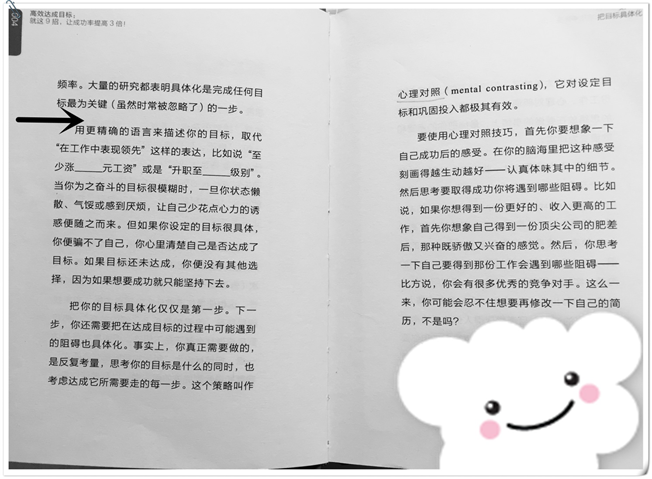 004
高效达成目标：
就这9招，让成功率提高3倍！
频率。大量的研究都表明具体化是完成任何目
标最为关键（虽然时常被忽略了）的一步。
用更精确的语言来描述你的目标，取代
“在工作中表现领先”这样的表达，比如说“至
少涨______元工资”或是“升职至______级别”。
当你为之奋斗的目标很模糊时，一旦你状态懒
散、气馁或感到厌烦，让自己少花点心力的诱
惑便随之而来。但如果你设定的目标很具体，
你便骗不了自己，你心里清楚自己是否达成了
目标。如果目标还未达成，你便没有其他选
择，因为如果想要成功就只能坚持下去。
把你的目标具体化仅仅是第一步。下一
步，你还需要把在达成目标的过程中可能遇到
的阻碍也具体化。事实上，你真正需要做的，
是反复考量，思考你的目标是什么的同时，也
考虑达成它所需要走的每一步。这个策略叫作
把目标具体化
心理对照（mental contrasting），它对设定目
标和巩固投入都极其有效。
要使用心理对照技巧，首先你要想象一下
自己成功后的感受。在你的脑海里把这种感受
刻画得越生动越好——认真体味其中的细节。
然后思考要取得成功你将遇到哪些阻碍。比如
说，如果你想得到一份更好的、收入更高的工
作，首先你想象自己得到一份顶尖公司的肥差
后，那种既骄傲又兴奋的感觉。然后，你思考
一下自己要得到那份工作会遇到哪些阻碍——
比方说，你会有很多优秀的竞争对手。这么一
来，你可能会忍不住想要再修改一下自己的简
历，不是吗？